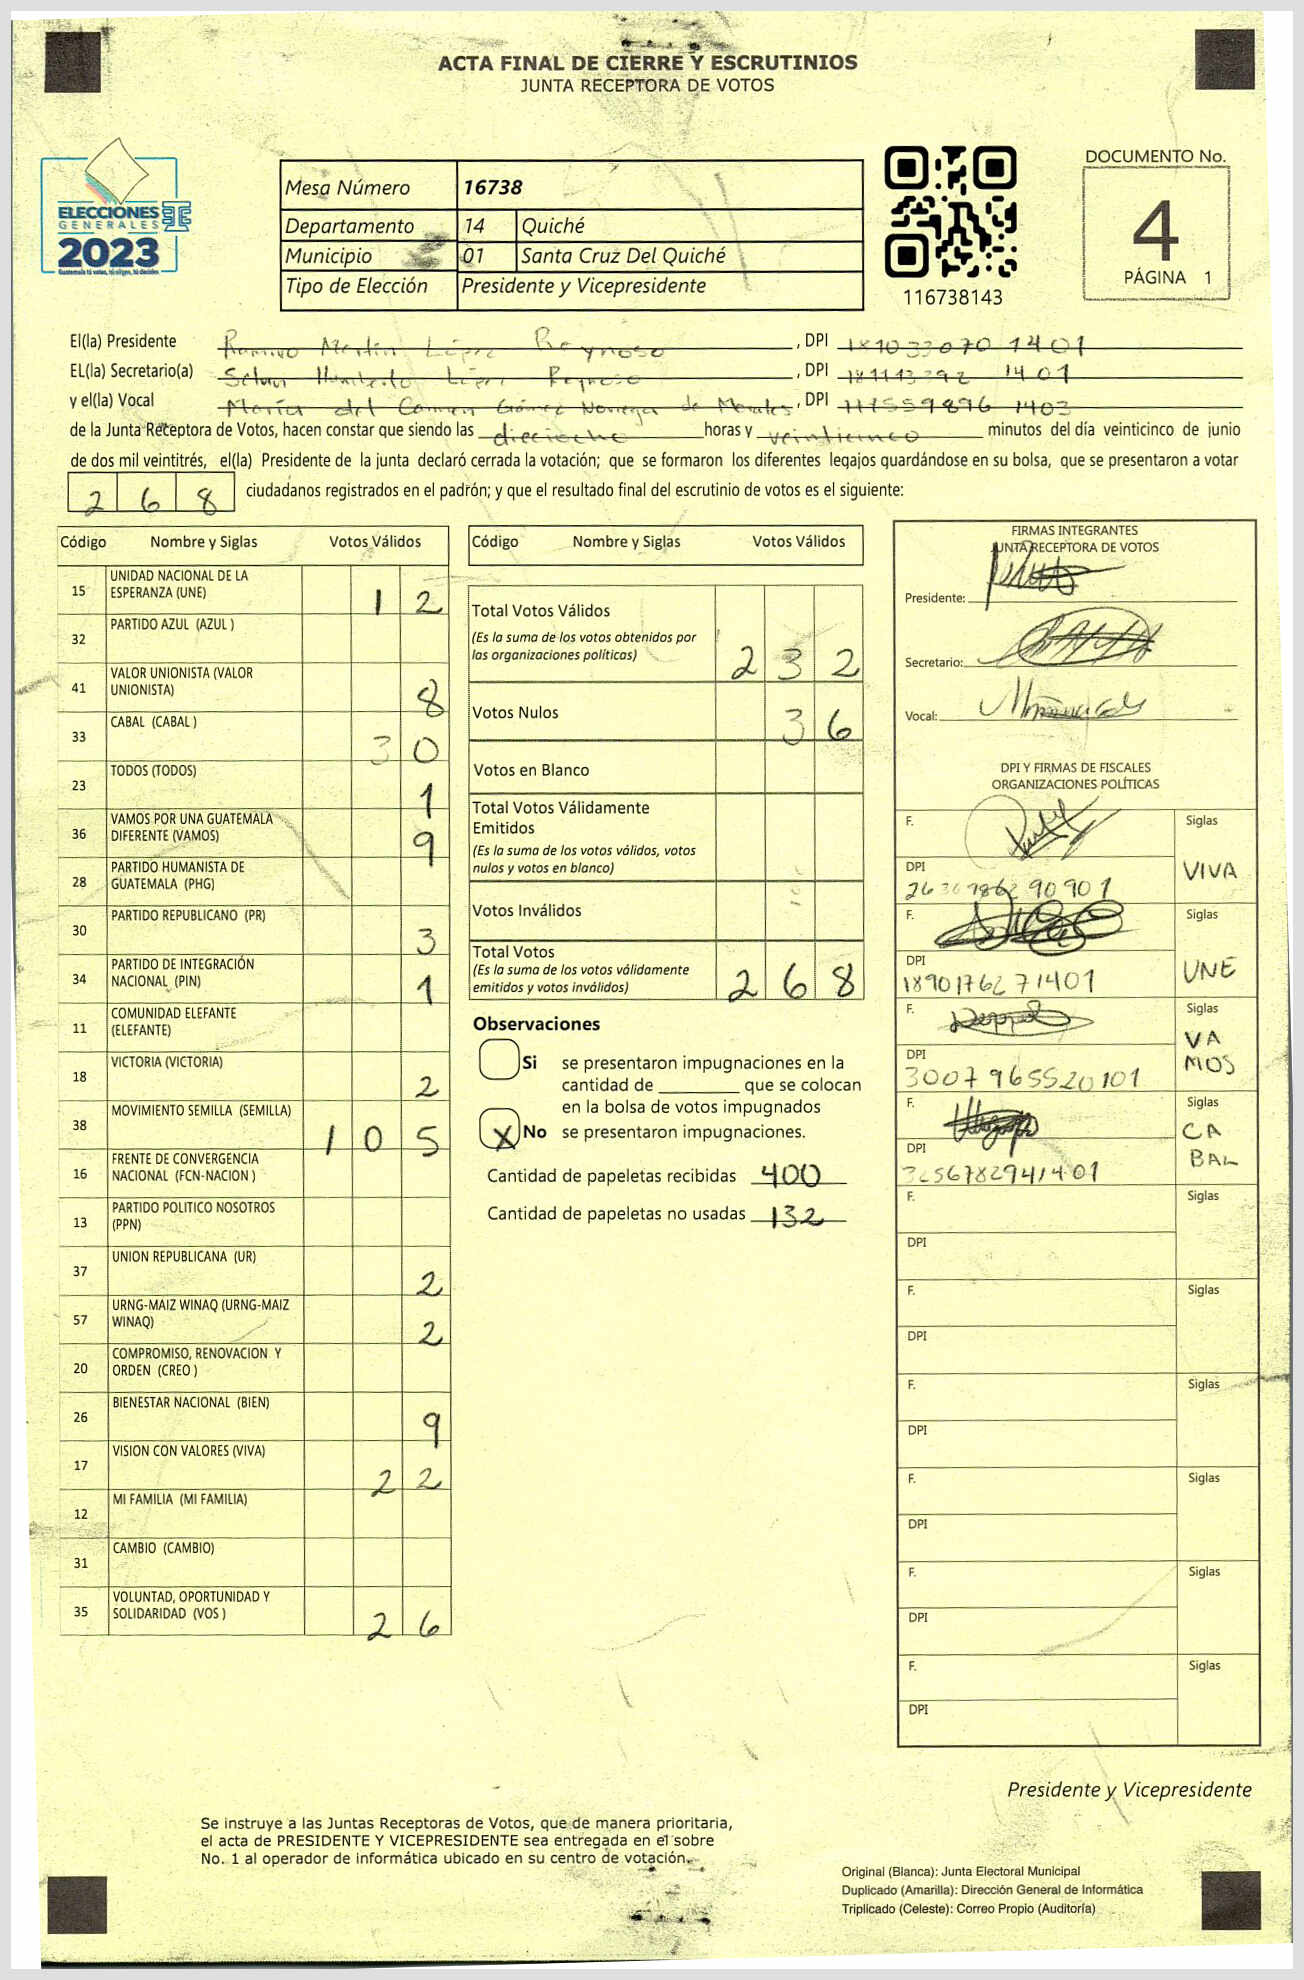 ACTA FINAL DE CIERRE Y ESCRUTINIOS
JUNTA RECEPTORA DE VOTOS
ELECCIONES
GENERALES
2023
Guatemala tú votas, tú eliges, tú decides
Mesa Número 16738
Departamento 14 Quiché
Municipio 01 Santa Cruz Del Quiché
Tipo de Elección Presidente y Vicepresidente
116738143
DOCUMENTO No.
4
PÁGINA 1
El(la) Presidente Ramiro Martín López Reynoso, DPI 1401
EL(la) Secretario(a) Humberto López Reynoso, DPI 1401
y el(la) Vocal María del Carmen Gómez Noriega de Morales, DPI 1403
de la Junta Receptora de Votos, hacen constar que siendo las dieciocho horas y veinticinco minutos del día veinticinco de junio
de dos mil veintitrés, el(la) Presidente de la junta declaró cerrada la votación; que se formaron los diferentes legajos guardándose en su bolsa, que se presentaron a votar
268 ciudadanos registrados en el padrón; y que el resultado final del escrutinio de votos es el siguiente:
Código Nombre y Siglas Votos Válidos
15 UNIDAD NACIONAL DE LA
ESPERANZA (UNE) 12
32 PARTIDO AZUL (AZUL )
41 VALOR UNIONISTA (VALOR
UNIONISTA) 8
33 CABAL (CABAL ) 30
23 TODOS (TODOS) 1
36 VAMOS POR UNA GUATEMALA
DIFERENTE (VAMOS) 9
28 PARTIDO HUMANISTA DE
GUATEMALA (PHG)
30 PARTIDO REPUBLICANO (PR) 3
34 PARTIDO DE INTEGRACIÓN
NACIONAL (PIN) 1
11 COMUNIDAD ELEFANTE
(ELEFANTE)
18 VICTORIA (VICTORIA) 2
38 MOVIMIENTO SEMILLA (SEMILLA) 105
16 FRENTE DE CONVERGENCIA
NACIONAL (FCN-NACION )
13 PARTIDO POLITICO NOSOTROS
(PPN)
37 UNION REPUBLICANA (UR) 2
57 URNG-MAIZ WINAQ (URNG-MAIZ
WINAQ) 2
20 COMPROMISO, RENOVACION Y
ORDEN (CREO )
26 BIENESTAR NACIONAL (BIEN) 9
17 VISION CON VALORES (VIVA) 22
12 MI FAMILIA (MI FAMILIA)
31 CAMBIO (CAMBIO)
35 VOLUNTAD, OPORTUNIDAD Y
SOLIDARIDAD (VOS ) 26
Código Nombre y Siglas Votos Válidos
Total Votos Válidos
(Es la suma de los votos obtenidos por
las organizaciones políticas) 232
Votos Nulos 36
Votos en Blanco
Total Votos Válidamente
Emitidos
(Es la suma de los votos válidos, votos
nulos y votos en blanco)
Votos Inválidos
Total Votos
(Es la suma de los votos válidamente
emitidos y votos inválidos) 268
Observaciones
Si se presentaron impugnaciones en la
cantidad de ________ que se colocan
en la bolsa de votos impugnados
X No se presentaron impugnaciones.
Cantidad de papeletas recibidas 400
Cantidad de papeletas no usadas 132
FIRMAS INTEGRANTES
JUNTA RECEPTORA DE VOTOS
Presidente:
Secretario:
Vocal:
DPI Y FIRMAS DE FISCALES
ORGANIZACIONES POLÍTICAS
F. Siglas
DPI VIVA
F. Siglas
DPI UNE
1890176271401
F. Siglas
DPI VA
MOS
3007965520101
F. Siglas
DPI CA
BAL
F. Siglas
DPI
F. Siglas
DPI
F. Siglas
DPI
F. Siglas
DPI
F. Siglas
DPI
F. Siglas
DPI
Presidente y Vicepresidente
Se instruye a las Juntas Receptoras de Votos, que de manera prioritaria,
el acta de PRESIDENTE Y VICEPRESIDENTE sea entregada en el sobre
No. 1 al operador de informática ubicado en su centro de votación.
Original (Blanca): Junta Electoral Municipal
Duplicado (Amarilla): Dirección General de Informática
Triplicado (Celeste): Correo Propio (Auditoría)